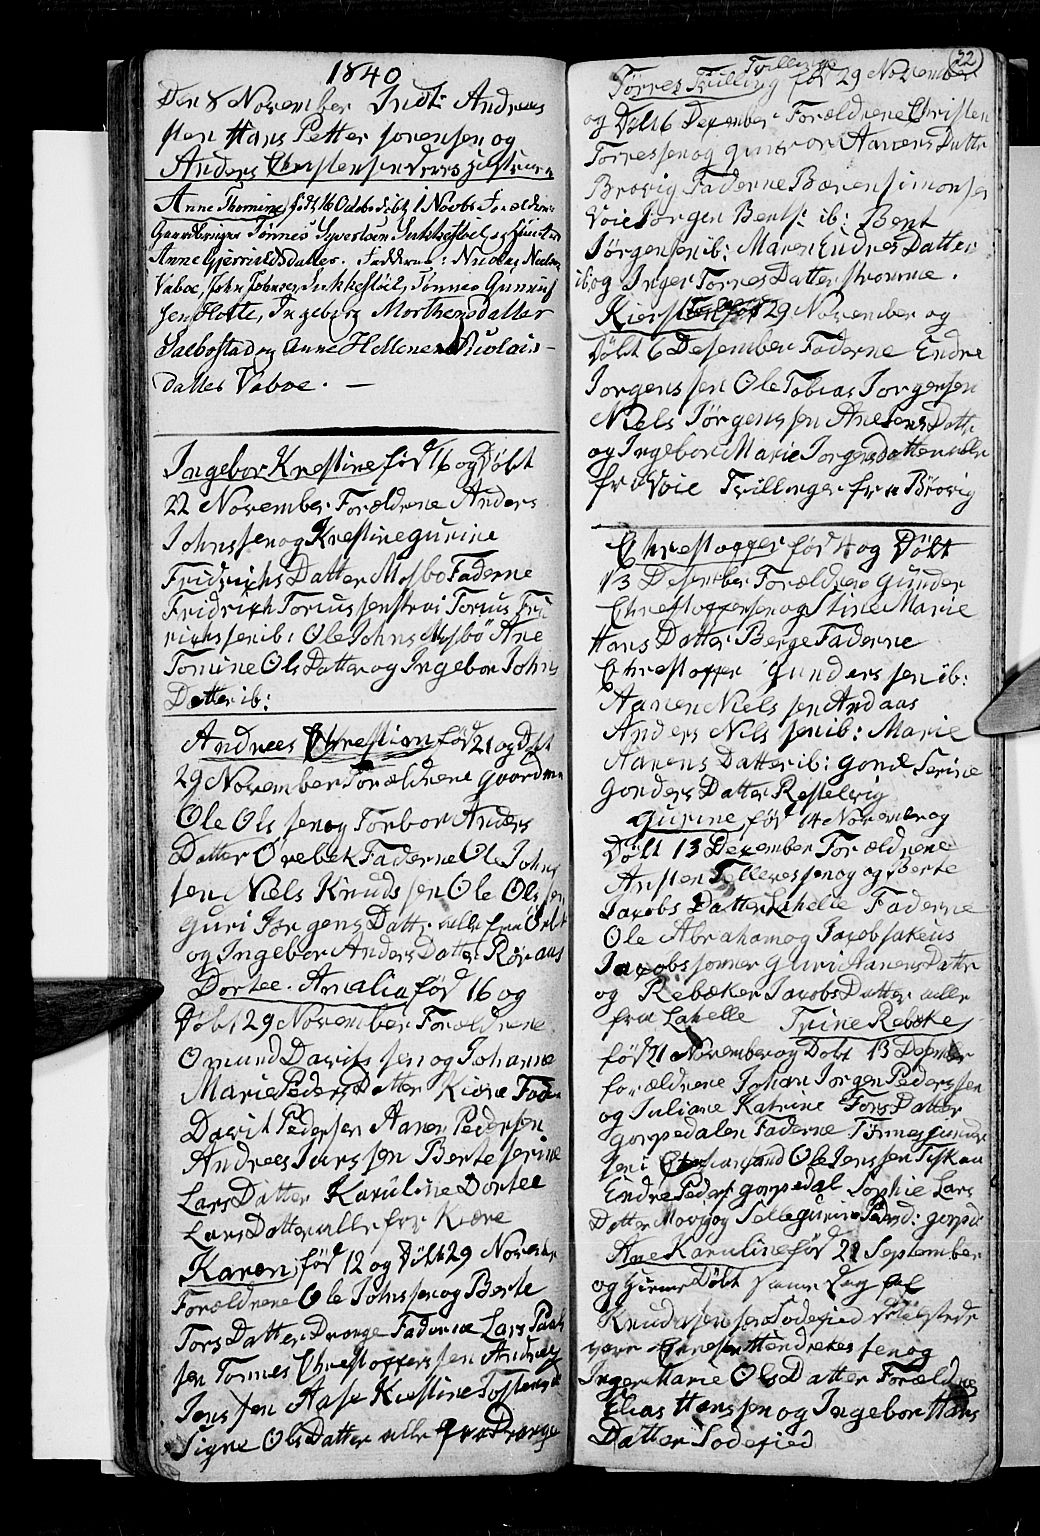 1840
Den 8 November Indt: Andreas
sten Hans Petter sorensen og
Anders Christensen
Anne Thomine, født 16 Octobr døbt 1 Novbr Forældrene
Gaardbruger Tønnes Syvertsen
Anne Gjerruldsdatter. Fadderne: Nicolay
Vaboe, John Tobiasen, Tønnes Gunnuf
sen Holte, Ingeborg Morthensdatter
Salbostad og Anne Hellene Nicolais-
datter Vaboe. —
Ingebor Krestine fød 16 og Døbt
22 November Forældrene Anders
Johnssen og Krestine gurine
Fridrichs Datter Mosbo Faderne
Fridrich Toriussen Torius Frid
richssen ib: Ole Johns Mosbø Ane
Tomine Ols Datter og Ingebor Johns
Datter ib:
Andrees Chrestian fød 21 og Døbt
29 November Forældrene gaardm
Ole Olssen og Torbor Anders
Datter Ørebek Faderne Ole Johns
sen Niels Knudssen Ole Olssen
guri Jorgens Datter alle fra
og Ingebor Anders Datter Røraas
Dortee. Amalia fød 16 og
Døbt 29 November Forældrene
Omund Davidssen og Johanne
Marie Peders Datter Kiøre Fader
David Pedersen Aanen Pedersen
Andrees Larssen Berte serine
Lars Datter Karuline Dortee
Lars Datter alle fra Kiøre
Karen, fød 12 og Døbt 29 November
Forældrene Ole Johnssen og Berte
Tors Datter Drange Faderne Lars
sen Tonnes Chrestofferssen Andreas
Jenssen Aase Krestine
Signe Ols Datter alle fra Drange
22
Trillinge
Torres Trilling fød 29 November
og Døbt 6 Desember Forældrene Christen
Torressen og gunvor Aanens Datter
Brøvig Faderne Bæren Simonsen
Voie Jørgen Bents: ib: Bent
Jørgensen ib: Maren Endres Datter
ib: og Inger Torres Datter
Kiersten fød 29 November og
Døbt 6 Desember Faderne Endre
Jorgenssen Ole Tobias Jorgensen
Niels Jørgenssen Ane Jens Datt:
og Ingebor Marie Jorgensdatter alle
fra Voie Trillinger fra Brøvig
Chrestoffer fød 4 og Døbt
13 Desember Forældrene Gunder
Chrestoffersen og Stine Marie
Hans Datter Berge Faderne
Chrestoffer gunderssen ib:
Aanen Nielssen Ardaas
Anders Nilssen ib: Marie
Aanens Datter ib: gone Serine
Gonders Datter Reselvig
gurine, fød 14 November og
Døbt 13 Desember Forældrene
Ansten Tellevssen og Berte
Jacobs Datter Lahelle Faderne
Ole Abraham og Jacob Jakeus
Jacobssønner Guri Aanens Datter
og Rebæker Jacobs Datter alle
fra Lahelle Trine Rebøke
fød 21 November og Døbt 13 Desember
forældrene Johan Jorgen Pederssen
og Juliane Katrine Tors Datter
gorpedalen Faderne Tønnes gunder
sen i Chrestiansand Ole Jenssen
Endre Peders gorpedal Sophie Lars
Datter og Sille gurine Pedersd: gorpd
Ane Karuline fød 21 September
og Døbt samme Dag af
Knud
vare Chresten Hendrekessen og
Inger Marie Ols Datter Forældrene
Elias Hanssen og Ingebor Hans
Datter